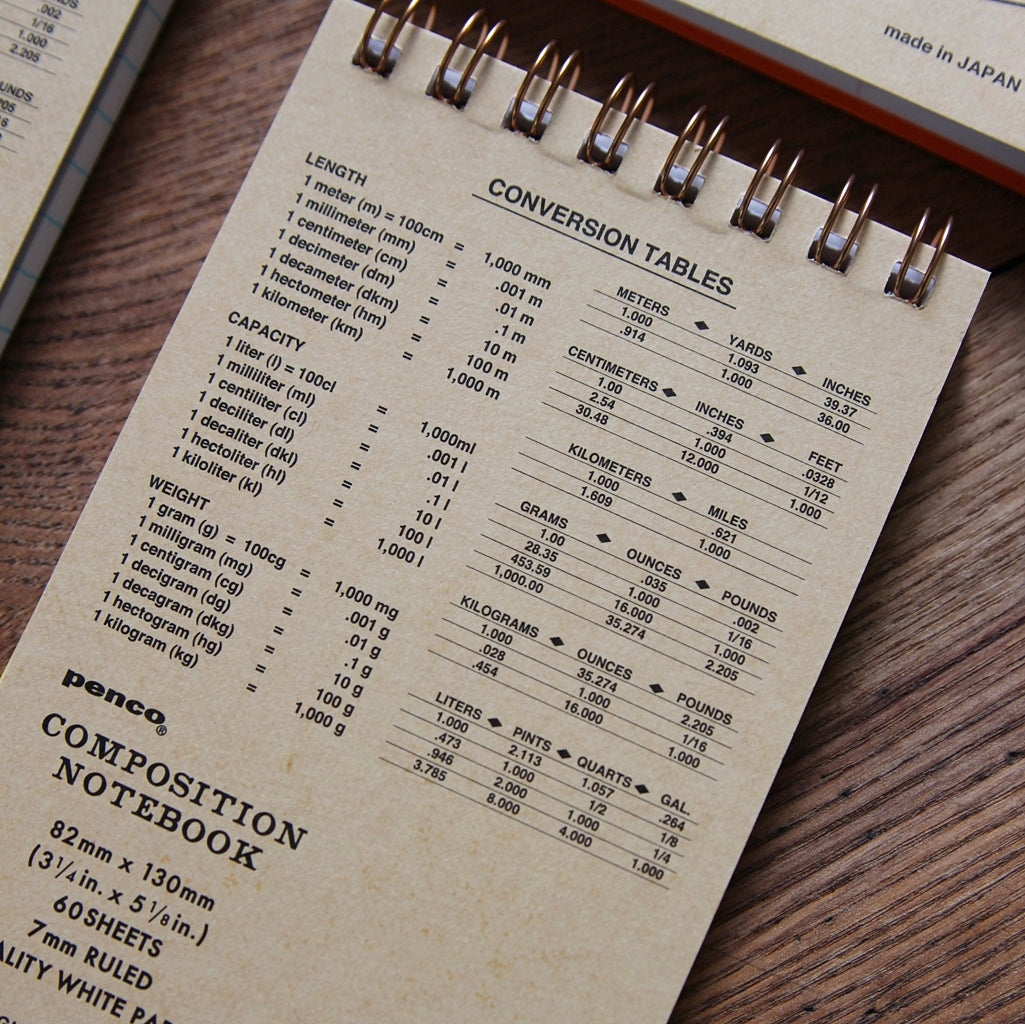 DS
.002
1/16
1.000
2.205
UNDS
205
made in JAPAN
CONVERSION TABLES
LENGTH
1 meter (m) = 100cm = 1,000 mm
1 millimeter (mm) = .001 m
1 centimeter (cm) = .01 m
1 decimeter (dm) = .1 m
1 decameter (dkm) = 10 m
1 hectometer (hm) = 100 m
1 kilometer (km) = 1,000 m
CAPACITY
1 liter (l) = 100cl = 1,000ml
1 milliliter (ml) = .001 l
1 centiliter (cl) = .01 l
1 deciliter (dl) = .1 l
1 decaliter (dkl) = 10 l
1 hectoliter (hl) = 100 l
1 kiloliter (kl) = 1,000 l
WEIGHT
1 gram (g) = 100cg = 1,000 mg
1 milligram (mg) = .001 g
1 centigram (cg) = .01 g
1 decigram (dg) = .1 g
1 decagram (dkg) = 10 g
1 hectogram (hg) = 100 g
1 kilogram (kg) = 1,000 g
METERS ◆ YARDS ◆ INCHES
1.000 1.093 39.37
.914 1.000 36.00
CENTIMETERS ◆ INCHES ◆ FEET
1.00 .394 .0328
2.54 1.000 1/12
30.48 12.000 1.000
KILOMETERS ◆ MILES
1.000 .621
1.609 1.000
GRAMS ◆ OUNCES ◆ POUNDS
1.00 .035 .002
28.35 1.000 1/16
453.59 16.000 1.000
1,000.00 35.274 2.205
KILOGRAMS ◆ OUNCES ◆ POUNDS
1.000 35.274 2.205
.028 1.000 1/16
.454 16.000 1.000
LITERS ◆ PINTS ◆ QUARTS ◆ GAL.
1.000 2.113 1.057 .264
.473 1.000 1/2 1/8
.946 2.000 1.000 1/4
3.785 8.000 4.000 1.000
penco®
COMPOSITION
NOTEBOOK
82mm x 130mm
(3 1/4 in. x 5 1/8 in.)
60SHEETS
7mm RULED
ALITY WHITE PAP